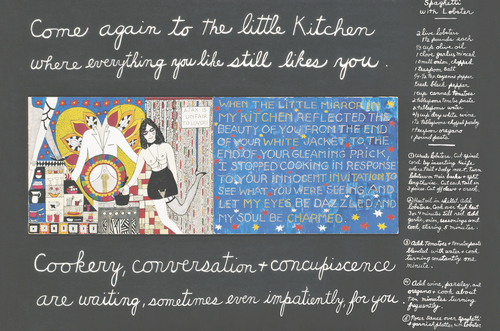 Come again to the little Kitchen
where everything you like still likes you.
WHEN THE LITTLE MIRROR IN
MY KITCHEN REFLECTED THE
BEAUTY OF YOU FROM THE END
OF YOUR WHITE JACKET TO THE
END OF YOUR GLEAMING PRICK,
I STOPPED COOKING IN RESPONSE
TO YOUR INNOCENT INVITATION TO
SEE WHAT YOU WERE SEEING AND
LET MY EYES BE DAZZLED AND
MY SOUL BE CHARMED.
Cookery, conversation + concupiscence
are waiting, sometimes even impatiently, for you.
Spaghetti
with Lobster
2 live lobsters
1½ pounds each
olive oil
1 clove garlic minced
1 small onion, chopped
1 teaspoon salt
cayenne pepper
fresh black pepper
1 cup canned tomatoes
2 tablespoons tomato paste
2 tablespoons water
cup dry white wine
chopped parsley
1 teaspoon oregano
1 pound pasta
lobsters. Cut spinal
cord by inserting knife
where tail + body meet. Turn
lobsters on their backs + split
lengthwise. Cut each tail in
3 pieces. Cut off claws + crack.
② Heat oil in skillet. Add
lobsters. Cook over high heat
3 or 4 minutes till red. Add
garlic, onion, seasonings and
cook, stirring 5 minutes.
③ Add tomatoes + tomato paste
blended with water + cook
turning constantly one
minute.
④ Add wine, parsley, and
oregano + cook about
ten minutes turning
frequently.
⑤ Pour sauce over spaghetti
+ garnish platter with lobster.